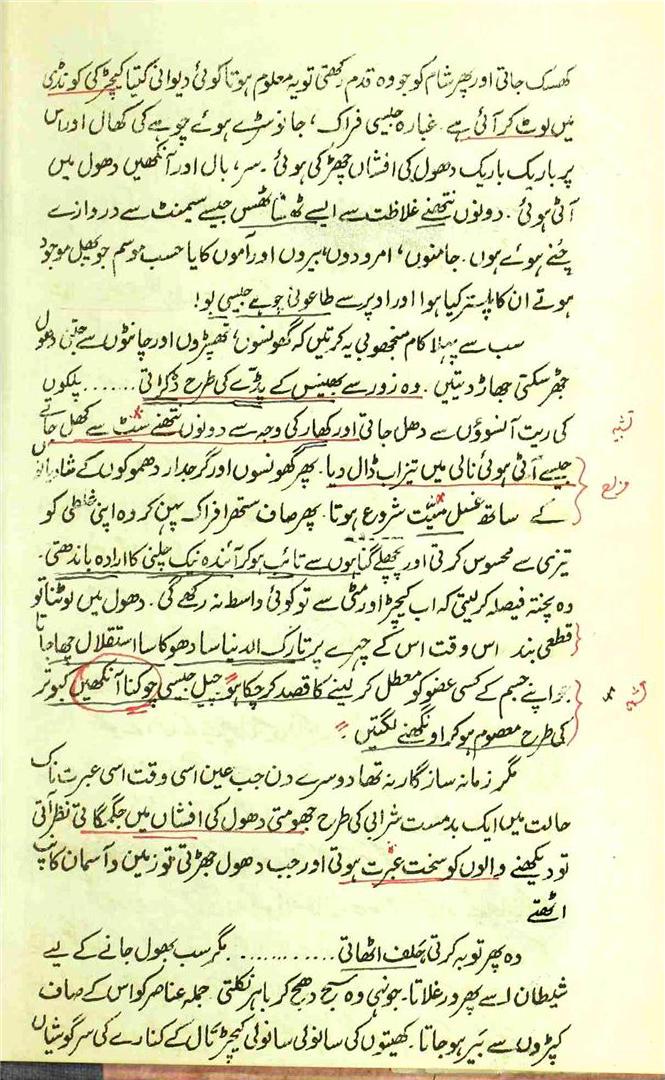 کھسک جاتی اور پھر شام کو جو وہ قدم رکھتی تو یہ معلوم ہوتا کوئی دیوانی کتیا کیچڑ کی کونڈی
میں لوٹ کر آئی ہے۔ غبارہ جیسی فراک، جانو سڑے ہوئے چوہے کی کھال اور اس
پر باریک باریک دھول کی افشاں چھڑکی ہوئی۔ سر، بال اور آنکھیں دھول میں
اَٹی ہوئی۔ دونوں نتھنے غلاظت سے ایسے ٹھسا ٹھس جیسے سیمنٹ سے دروازے
چُنے ہوئے ہوں۔ جامنوں، امرودوں، بیروں اور آموں کا یا حسب موسم جو پھل موجود
ہوتے ان کا پلستر کیا ہوا اور اوپر سے طاعونی چوہے جیسی بو!
سب سے پہلا کام منجھو بی یہ کرتیں کہ گھونسوں، تھپڑوں اور چانٹوں سے جتنی دھول
جھڑ سکتی جھاڑ دیتیں۔ وہ زور سے بھینس کے پڑّے کی طرح ڈکراتی ...... پلکوں
کی ریت آنسوؤں سے دھل جاتی اور کھار کی وجہ سے دونوں نتھنے سٹ سے کھل جاتے
تشبیہ
جیسے اَٹی ہوئی نالی میں تیزاب ڈال دیا۔ پھر گھونسوں اور گرجدار دھموکوں کے
مزاح
کے ساتھ غسل میّت شروع ہوتا۔ پھر صاف ستھرا فراک پہن کر وہ اپنی غلطی کو
تیزی سے محسوس کرتی اور پچھلے گناہوں سے تائب ہو کر آئندہ نیک چلنی کا ارادہ باندھتی۔
وہ پختہ فیصلہ کر لیتی کہ اب کیچڑ اور مٹی سے تو کوئی واسطہ نہ رکھے گی۔ دھول میں لوٹنا تو
قطعی بند اس وقت اس کے چہرے پر تارک الدنیا سادھو کا سا استقلال چھا جاتا
جو اپنے جسم کے کسی عضو کو معطل کر لینے کا قصد کر چکا ہو چیل جیسی چوکنا آنکھیں کبوتر
کی طرح معصوم ہو کر اونگھنے لگتیں۔
مگر زمانہ سازگار نہ تھا دوسرے دن جب عین اسی وقت اسی عبرت ناک
حالت میں ایک بدمست شرابی کی طرح جھومتی دھول کی افشاں میں جگمگاتی نظر آتی
تو دیکھنے والوں کو سخت عبرت ہوتی اور جب دھول جھڑتی تو زمین و آسمان کانپ
اٹھتے
وہ پھر توبہ کرتی، حلف اٹھاتی ............ مگر سب بھول جانے کے لیے
شیطان اسے پھر ورغلاتا۔ جونہی وہ سج دھج کر باہر نکلتی۔ جملہ عناصر کو اس کے صاف
کپڑوں سے بَیر ہو جاتا۔ کھیتوں کی سانولی سانولی کیچڑ تال کے کنارے کی سرگوشیاں